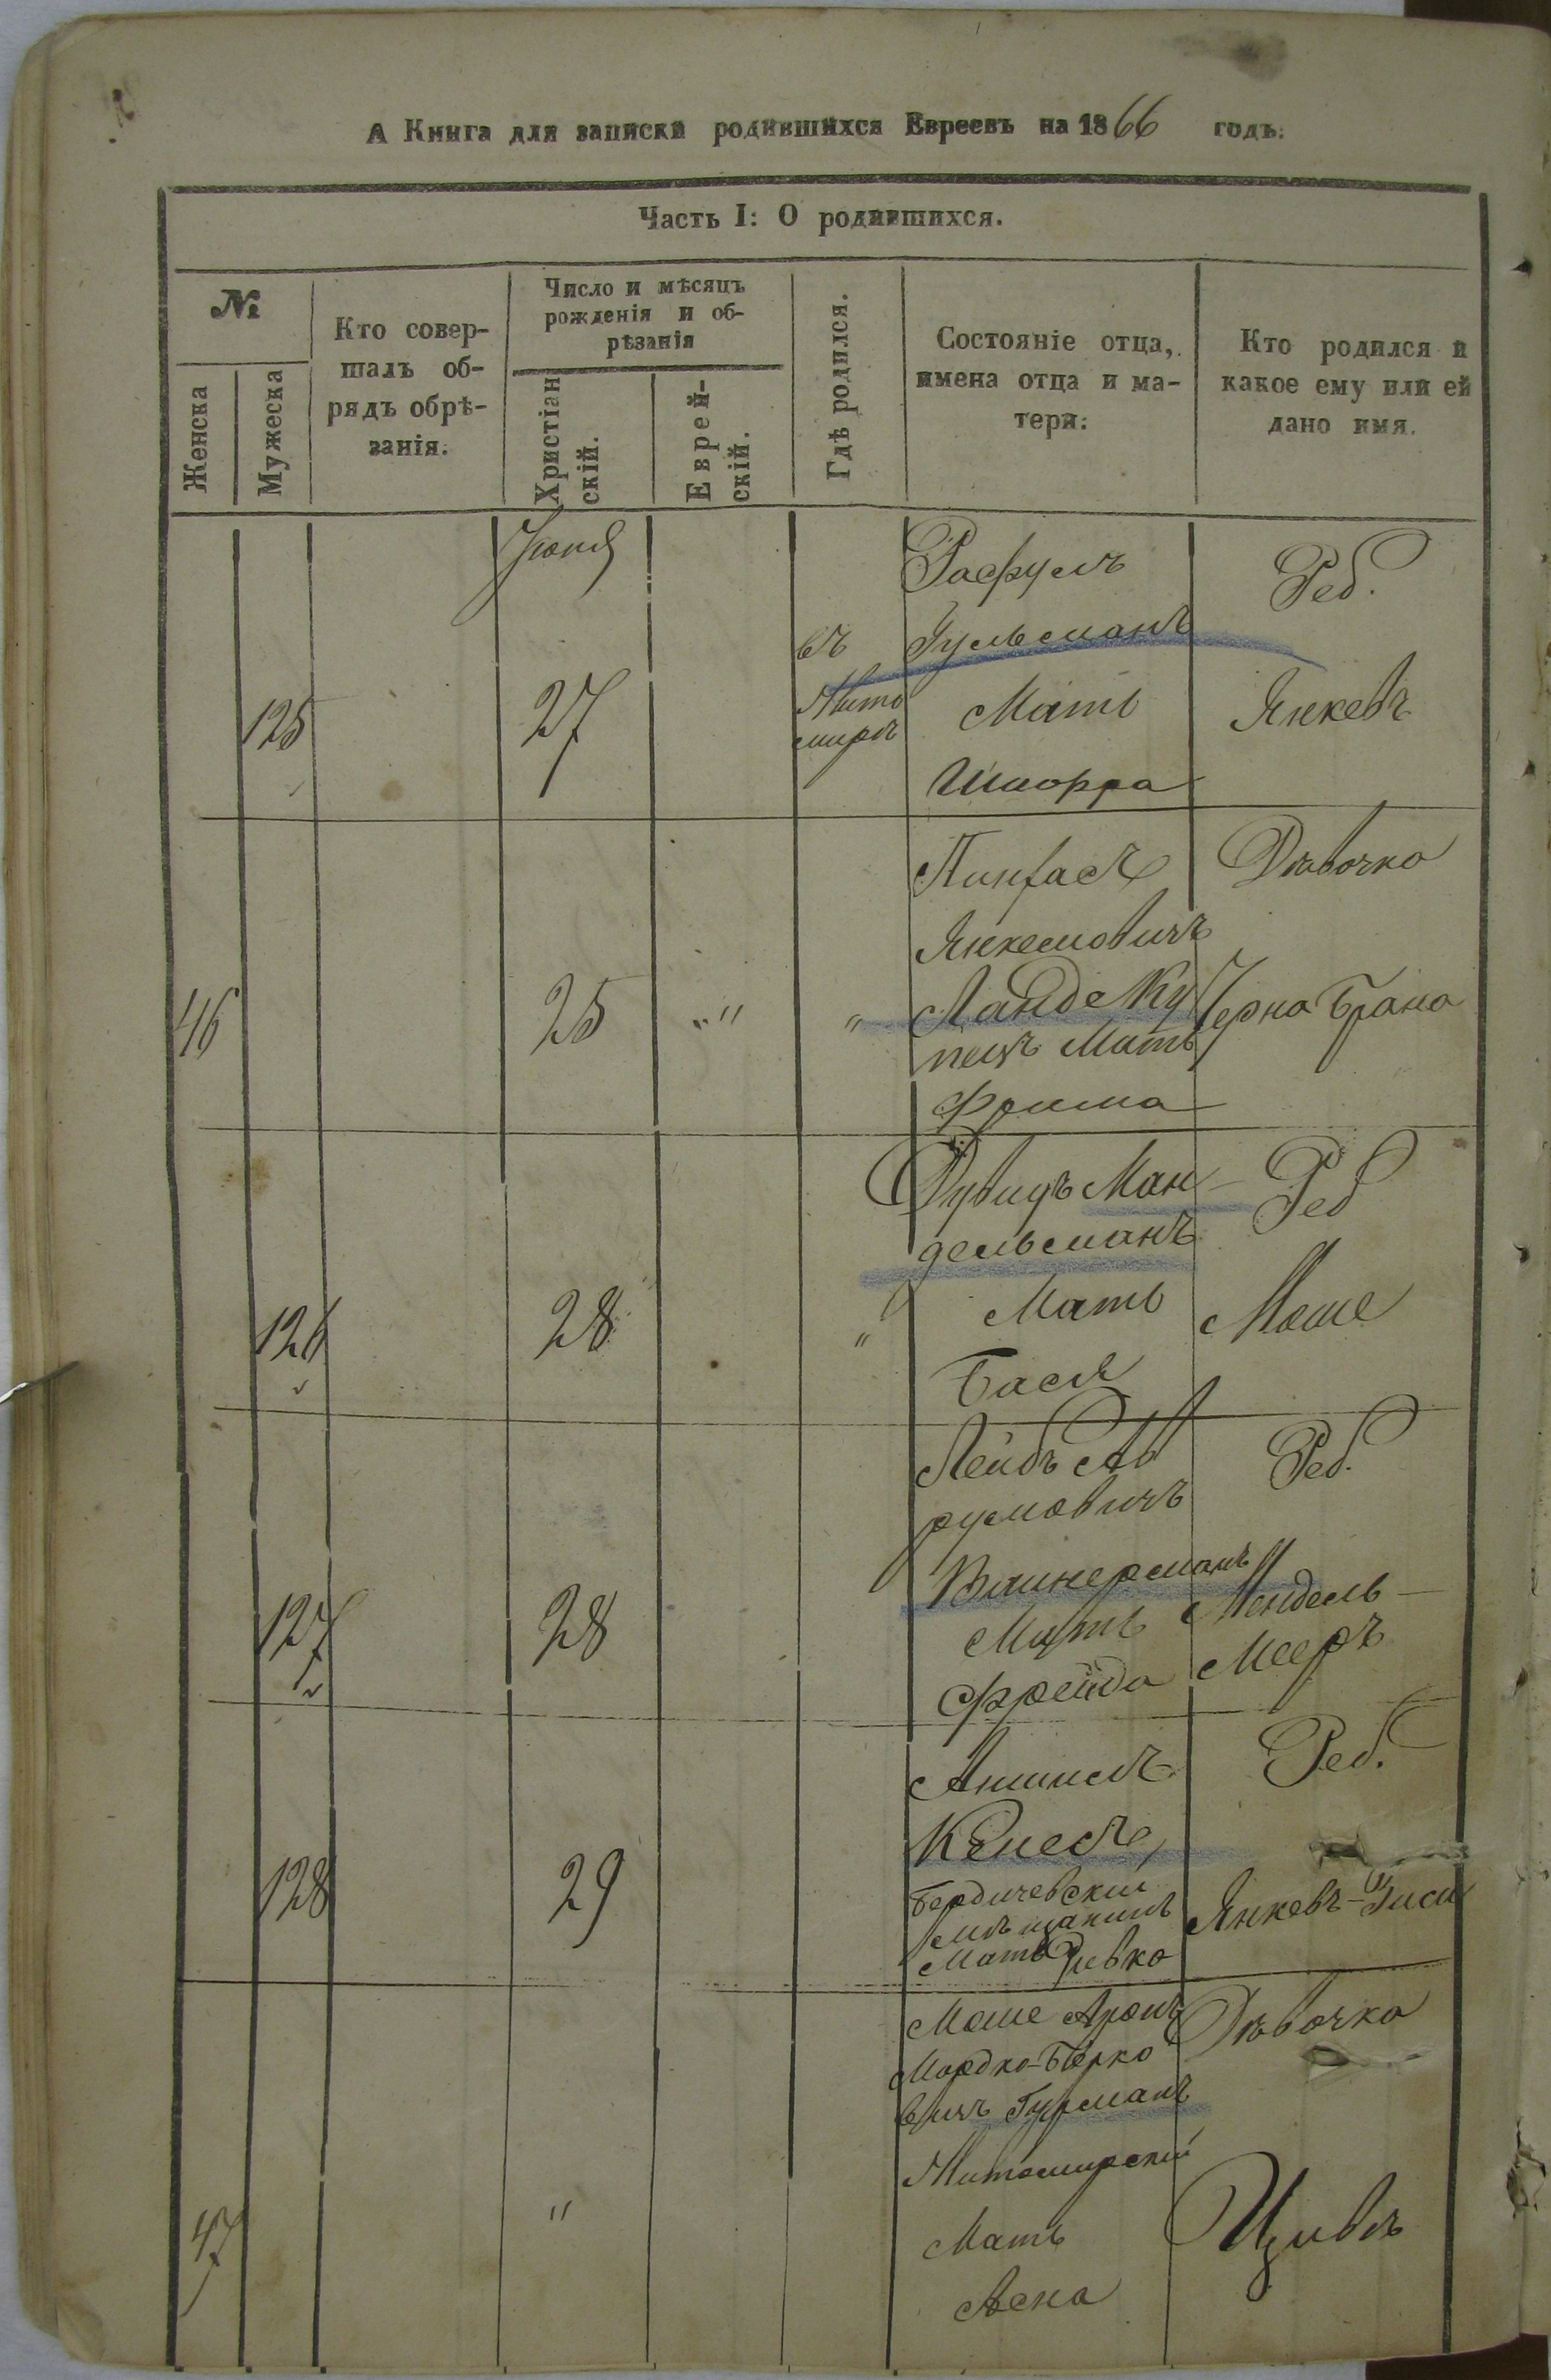 А Книга для записки родившихся Евреевъ на 1866 годъ.
Часть I: О родившихся.
№
Женска
Мужеска
Кто совер-
шалъ об-
рядъ обрѣ-
занія.
Число и мѣсяцъ
рожденія и об-
рѣзанія
Христіан
скій.
Еврей-
скій.
Гдѣ родился.
Состояніе отца,
имена отца и ма-
тери.
Кто родился и
какое ему или ей
дано имя.
Іюня
125
27
въ
Жито
мирѣ
Рафулъ
Гульманъ
Мать
Реб.
Янкевъ
46
25
"
"
Пинхасъ
Янкелювичъ
Ланде Ку
пецъ Мать
Фрима
Дѣвочка
Черна Брана
126
28
"
Дувидъ Ман-
дельманъ
Мать
Бася
Реб
Моше
127
28
Лейбъ Аб
румовичъ
Вайнерманъ
Мать
Фрейда
Реб.
Мендель-
Мееръ
128
29
Аншелъ
Бердичевскій
мѣщанинъ
Мать Ривка
Реб.
Янкевъ-
47
"
Моше Аронъ
Мордко-Берко
вичъ Гурманъ
Житомирскій
Мать
Асна
Дѣвочка
Цивъ